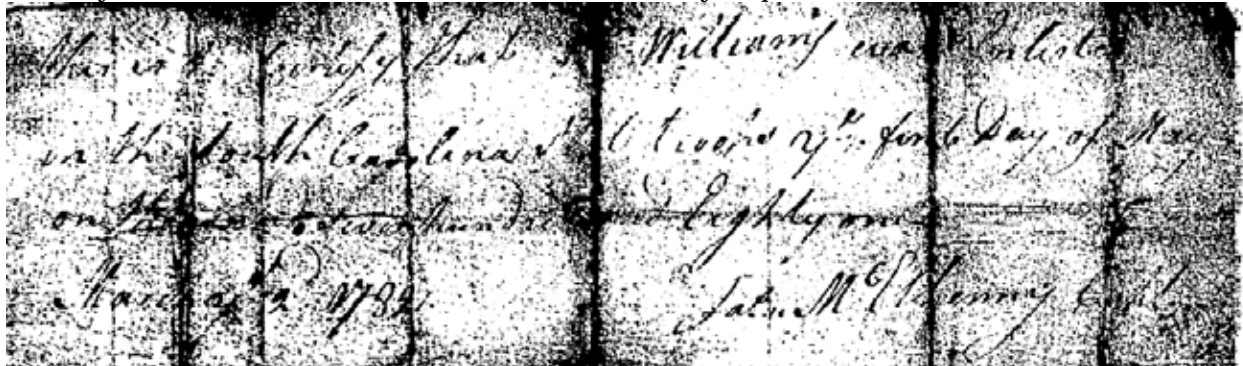 this is to Certify that Williams was Inlisted
in the South Carolina State Troops ye. first Day of May
on hundred and Eighty one
March 1782 John McElhenny Capt